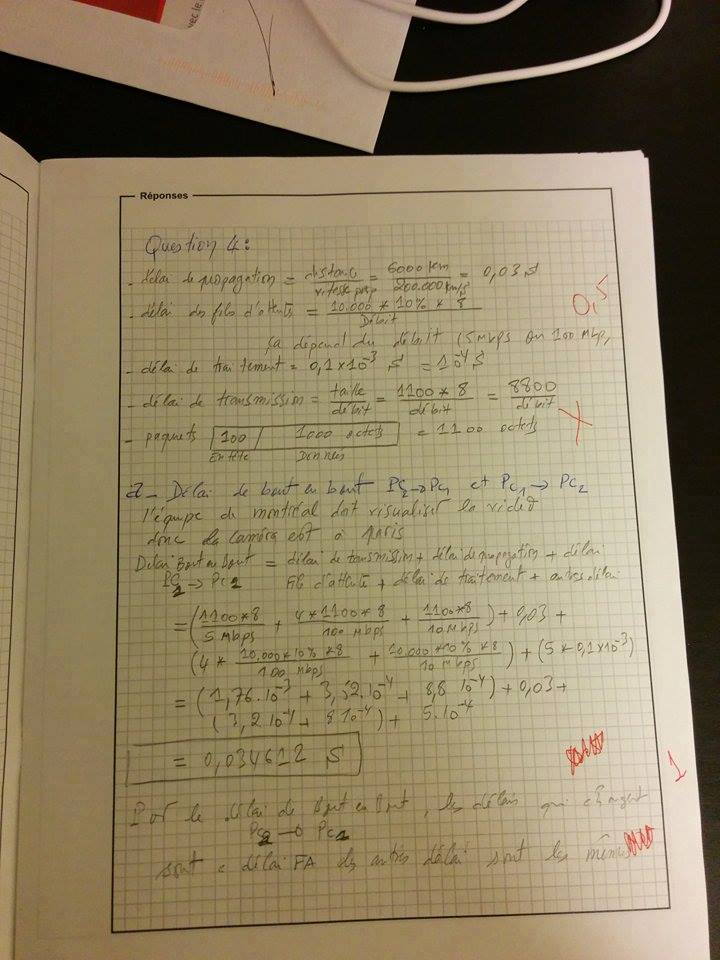 vec le
Réponses
Question 4:
- délai de propagation = distance / vitesse prop = 6000 km / 200.000 km/s = 0,03 s
- délai des files d'attente = 10.000 * 10% * 8 / Débit
0,5
ça dépend du débit (5 Mbps ou 100 Mbp,
- délai de traitement = 0,1 x 10^-3 s = 10^-4 s
- délai de transmission = taille / débit = 1100 * 8 / débit = 8800 / débit
- paquets 100 / 1000 octets = 1100 octets
Entête Données
a - Délai de bout en bout PC2 → PC1 et PC1 → PC2
l'équipe de montréal doit visualiser la vidéo
donc la caméra est à Paris
Délai Bout en Bout = délai de transmission + délai de propagation + délai
PC2 → PC1 file d'attente + délai de traitement + autres délai
= (1100*8 / 5 Mbps + 4*1100*8 / 100 Mbps + 1100*8 / 10 Mbps) + 0,03 +
(4 * 10.000*10%*8 / 100 Mbps + 10.000*10%*8 / 10 Mbps) + (5 * 0,1x10^-3)
= (1,76.10^-3 + 3,52.10^-4 + 8,8 10^-4) + 0,03 +
(3,2.10^-4 + 8 10^-4) + 5.10^-4
= 0,034612 s
1
Por le délai de Bout en Bout, les délais qui changent
sont = délai FA les autres délai sont les mêmes